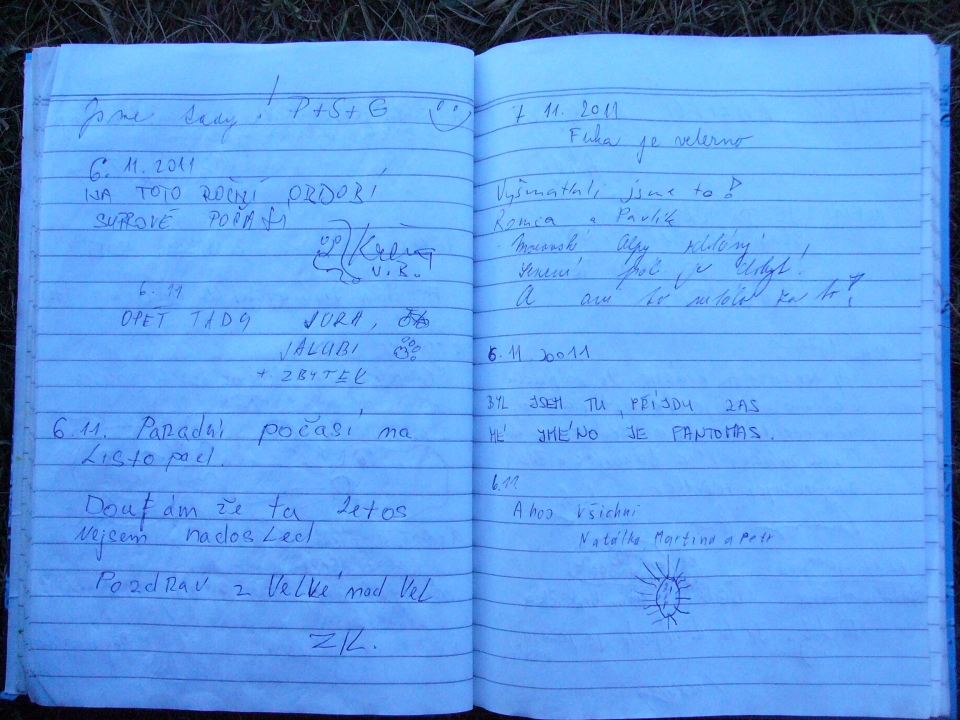 Jsme tady! P+S+G
6. 11. 2011
NA TOTO ROČNÍ OBDOBÍ
SUPROVÉ POČASÍ
V.B.
6. 11
OPĚT TADY JURA,
JALUBI
+ ZBYTEK
6.11. Paradní počasí na
Listopad.
Doufám že tu letos
Nejsem nadosled
Pozdrav z Velké nad Vel
ZK.
7 11. 2011
Fuka je
Vyšmatlali jsme to!
Romča a Pavlík
Moravské Alpy
A ani to
6. 11 20011
BYL JSEM TU, PŘÍJDU ZAS
MÉ JMÉNO JE FANTOMAS.
6.11
Ahoj všichni
Natálka, Martina a Petr